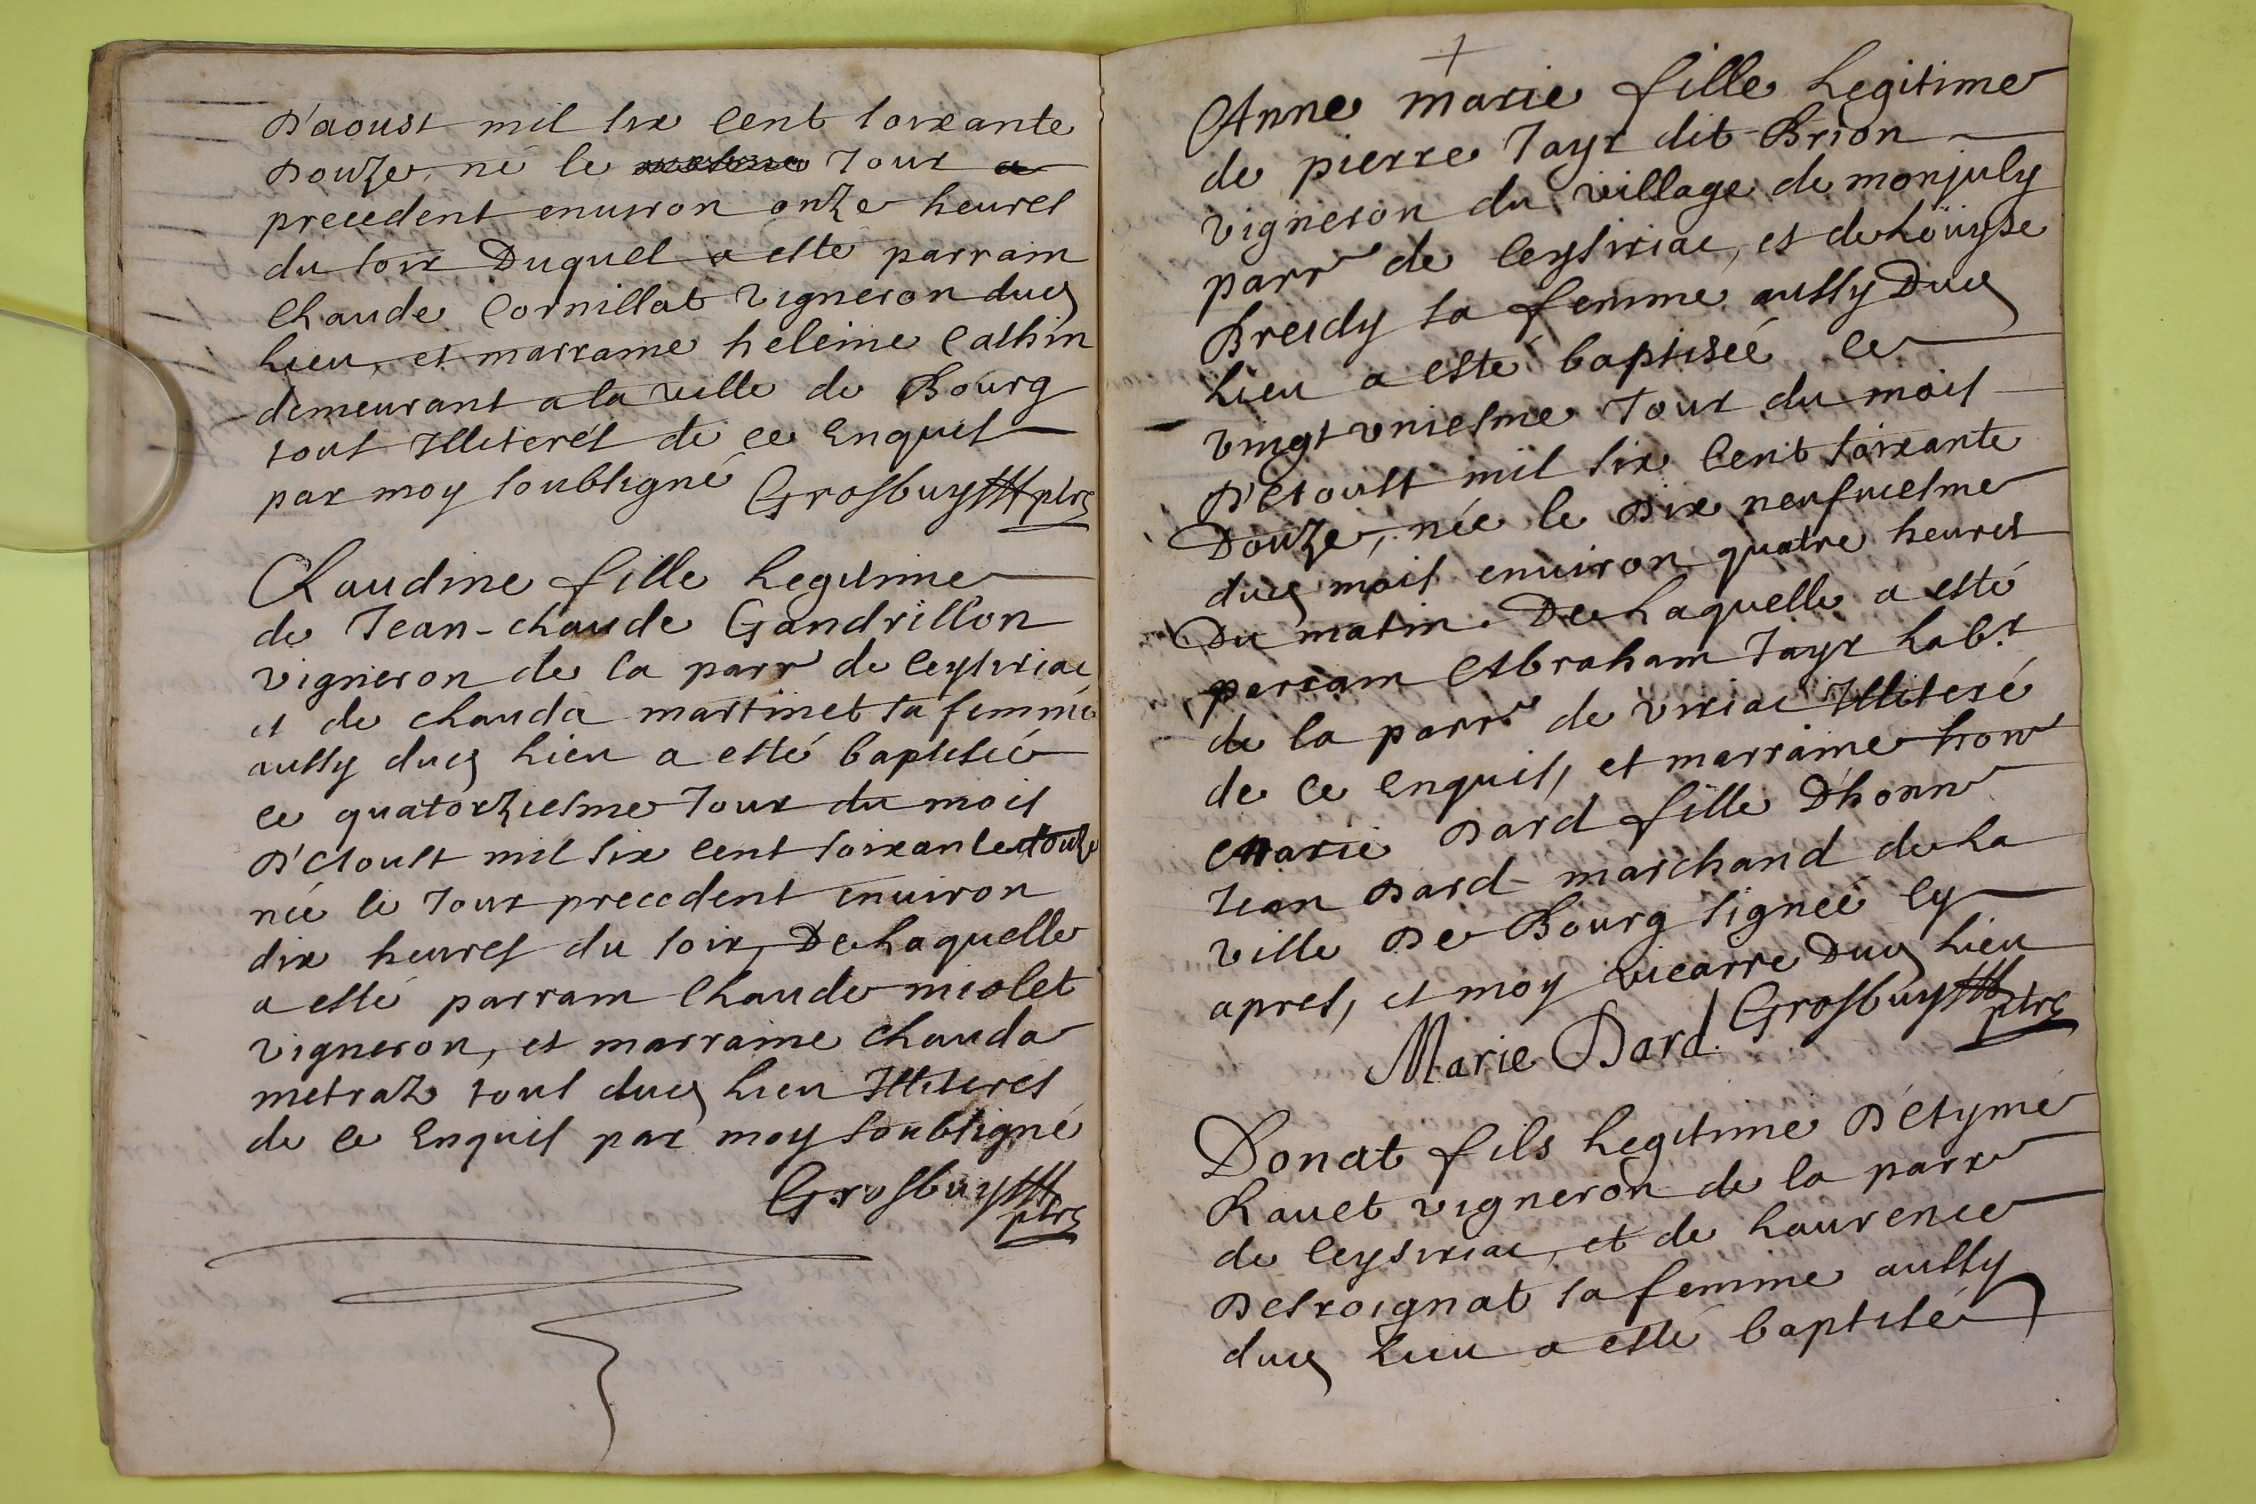 D'aoust mil six cent soixante
Douze, né le mesme jour a
precedent enuiron onze heures
du soir Duquel a esté parrain
Claude Cornillat vigneron ducs
lieu, et marraine heleine Cathin
demeurant a la ville de Bourg
tous Illiterés de ce enquis
par moy soubsigné Grosbuy ptre
Claudine fille legitime
de Jean-claude Gandrillon
vigneron de la parr de ceysiriac
et de clauda martinet sa femme
aussy ducs lieu a esté baptisée
ce quatorziesme jour du mois
D'Aoust mil six cent soixante douze
née le jour precedent enuiron
dix heures du soir, De laquelle
a esté parrain Claude miolet
vigneron, et marraine clauda
metraz tous ducs lieu Illiteres
de ce enquis par moy soubsigné
Grosbuy
ptre
+
Anne marie fille legitime
de pierre Jayr dit Brion
vigneron du village de monjuly
parr de Ceysiriac, et de Loüyse
Breidy sa femme aussy Ducs
lieu a esté baptisée ce
vingt vniesme jour du mois
D'Aoust mil six cent soixante
Douze, née le dix neufuiesme
ducs mois enuiron quatre heures
Du matin. De laquelle a esté
parrain Abraham Jayr labr
de la parr de viriac Illiteré
de ce enquis, et marraine hon
Marie Dard fille D'honn
Jean Dard marchand de la
ville De Bourg signée cy
apres, et moy vicarre Ducs lieu
Marie Dard Grosbuy
ptre
Donat fils legitime D'Etyme
Rauet vigneron de la parr
de Ceysiriac, et de Laurence
Desroignat sa femme aussy
ducs lieu a esté baptisé